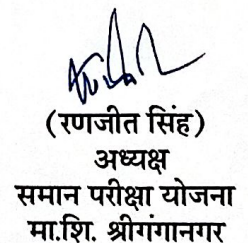 (रणजीत सिंह)
अध्यक्ष
समान परीक्षा योजना
मा.शि. श्रीगंगानगर